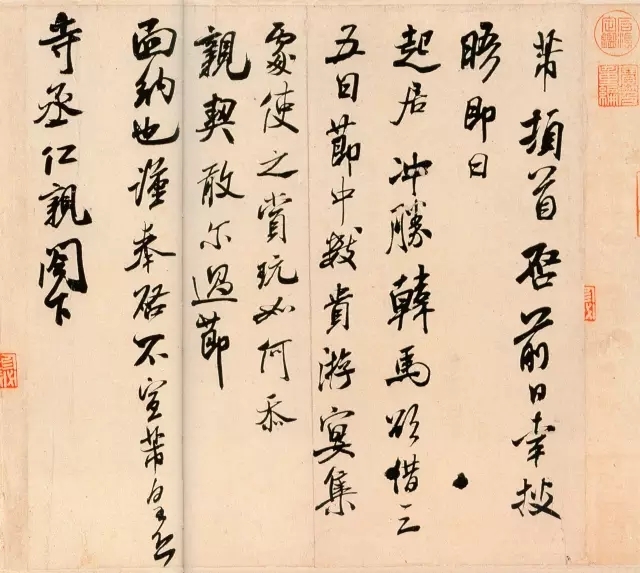 芾頓首啓前日幸披
晤即日
起居沖勝韓馬欲借三
五日節中數貴游宴集
處使之賞玩如何忝
親契敢尓過節
面納也謹奉啓不宣芾皇恐
寺丞仁親閣下